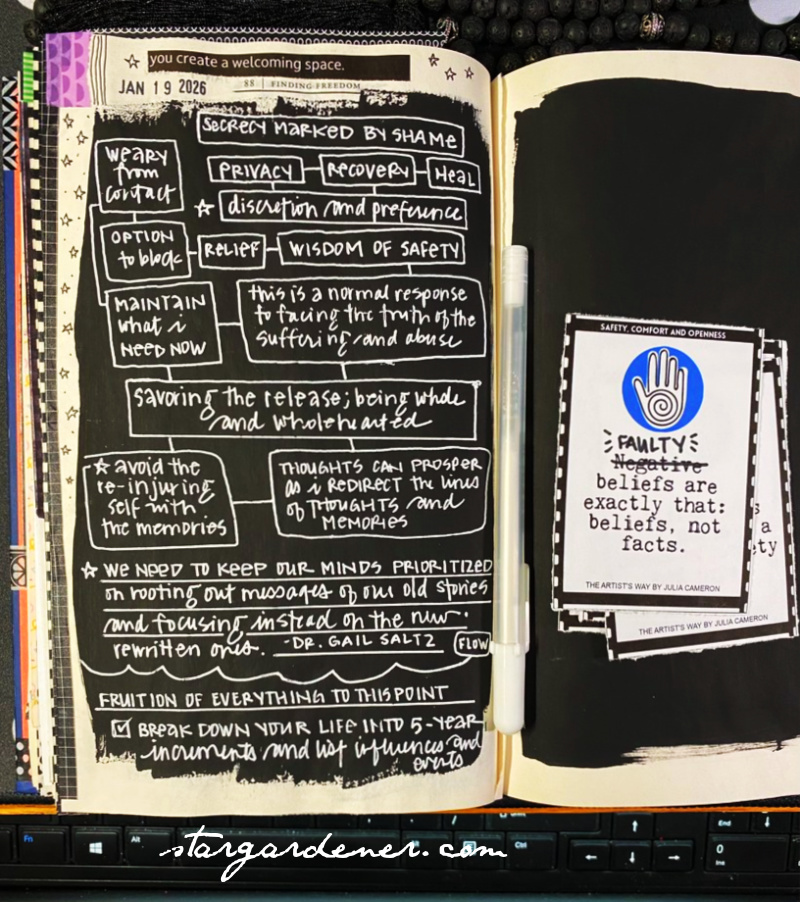 you create a welcoming space.
JAN 19 2026
88 | FINDING FREEDOM
SECRECY MARKED BY SHAME
WEARY
from
contact
PRIVACY
RECOVERY
HEAL
discretion and preference
OPTION
to block
RELIEF
WISDOM OF SAFETY
MAINTAIN
what i
NEED NOW
this is a normal response
to facing the truth of the
suffering and abuse
savoring the release; being whole
and wholehearted
avoid the
re-injuring
self with
the memories
THOUGHTS CAN PROSPER
as i REDIRECT the lines
OF THOUGHTS and
MEMORIES
WE NEED TO KEEP OUR MINDS PRIORITIZED
on rooting out messages of our old stories
and focusing instead on the new
rewritten ones. -DR. GAIL SALTZ
FLOW
FRUITION OF EVERYTHING TO THIS POINT
BREAK DOWN YOUR LIFE INTO 5-YEAR
increments and list influences and
events
SAFETY, COMFORT AND OPENNESS
FAULTY
Negative
beliefs are
exactly that:
beliefs, not
facts.
THE ARTIST'S WAY BY JULIA CAMERON
s
a
ety
THE ARTIST'S WAY BY JULIA CAMERON
Fn
Alt
End
0
Ins
stargardener.com